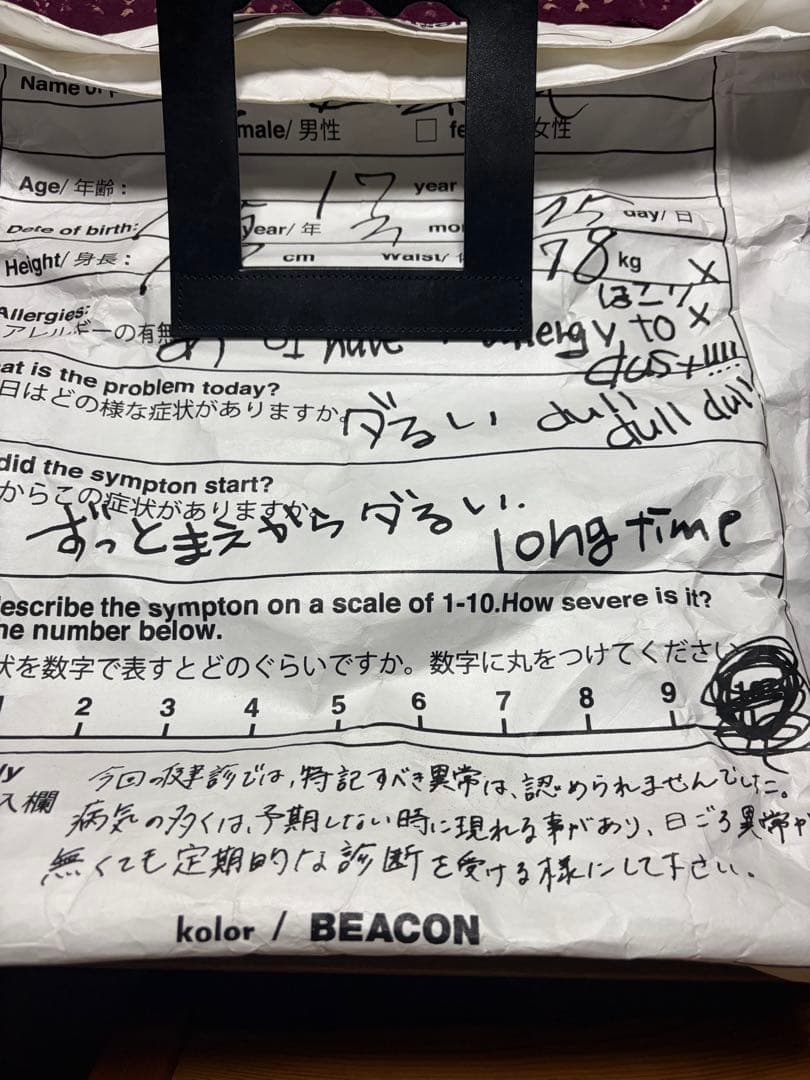 Name of
male/ 男性 □ 女性
Age/ 年齢: 17 year
Date of birth: year/ 年 25 day/ 日
Height/ 身長: cm Waist/ 78 kg
Allergies: ほこり x
アレルギーの有無 I have allergy to x
dust!!!!
at is the problem today?
日はどの様な症状がありますか。 ダるい dull
dull dull
did the sympton start?
からこの症状がありますか。
ずっとまえからダるい. long time
escribe the sympton on a scale of 1-10.How severe is it?
he number below.
状を数字で表すとどのぐらいですか。数字に丸をつけてください
2 3 4 5 6 7 8 9
今回の健診では、特記すべき異常は、認められませんでした。
入欄
病気の多くは、予期しない時に現れる事があり、日ごろ異常が
無くても定期的な診断を受ける様にして下さい。
kolor / BEACON